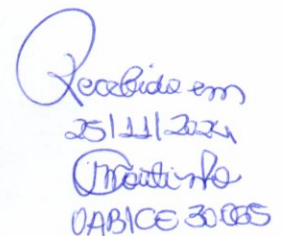 Recebido em
25/11/2024
Moutinho
OAB/CE 30065